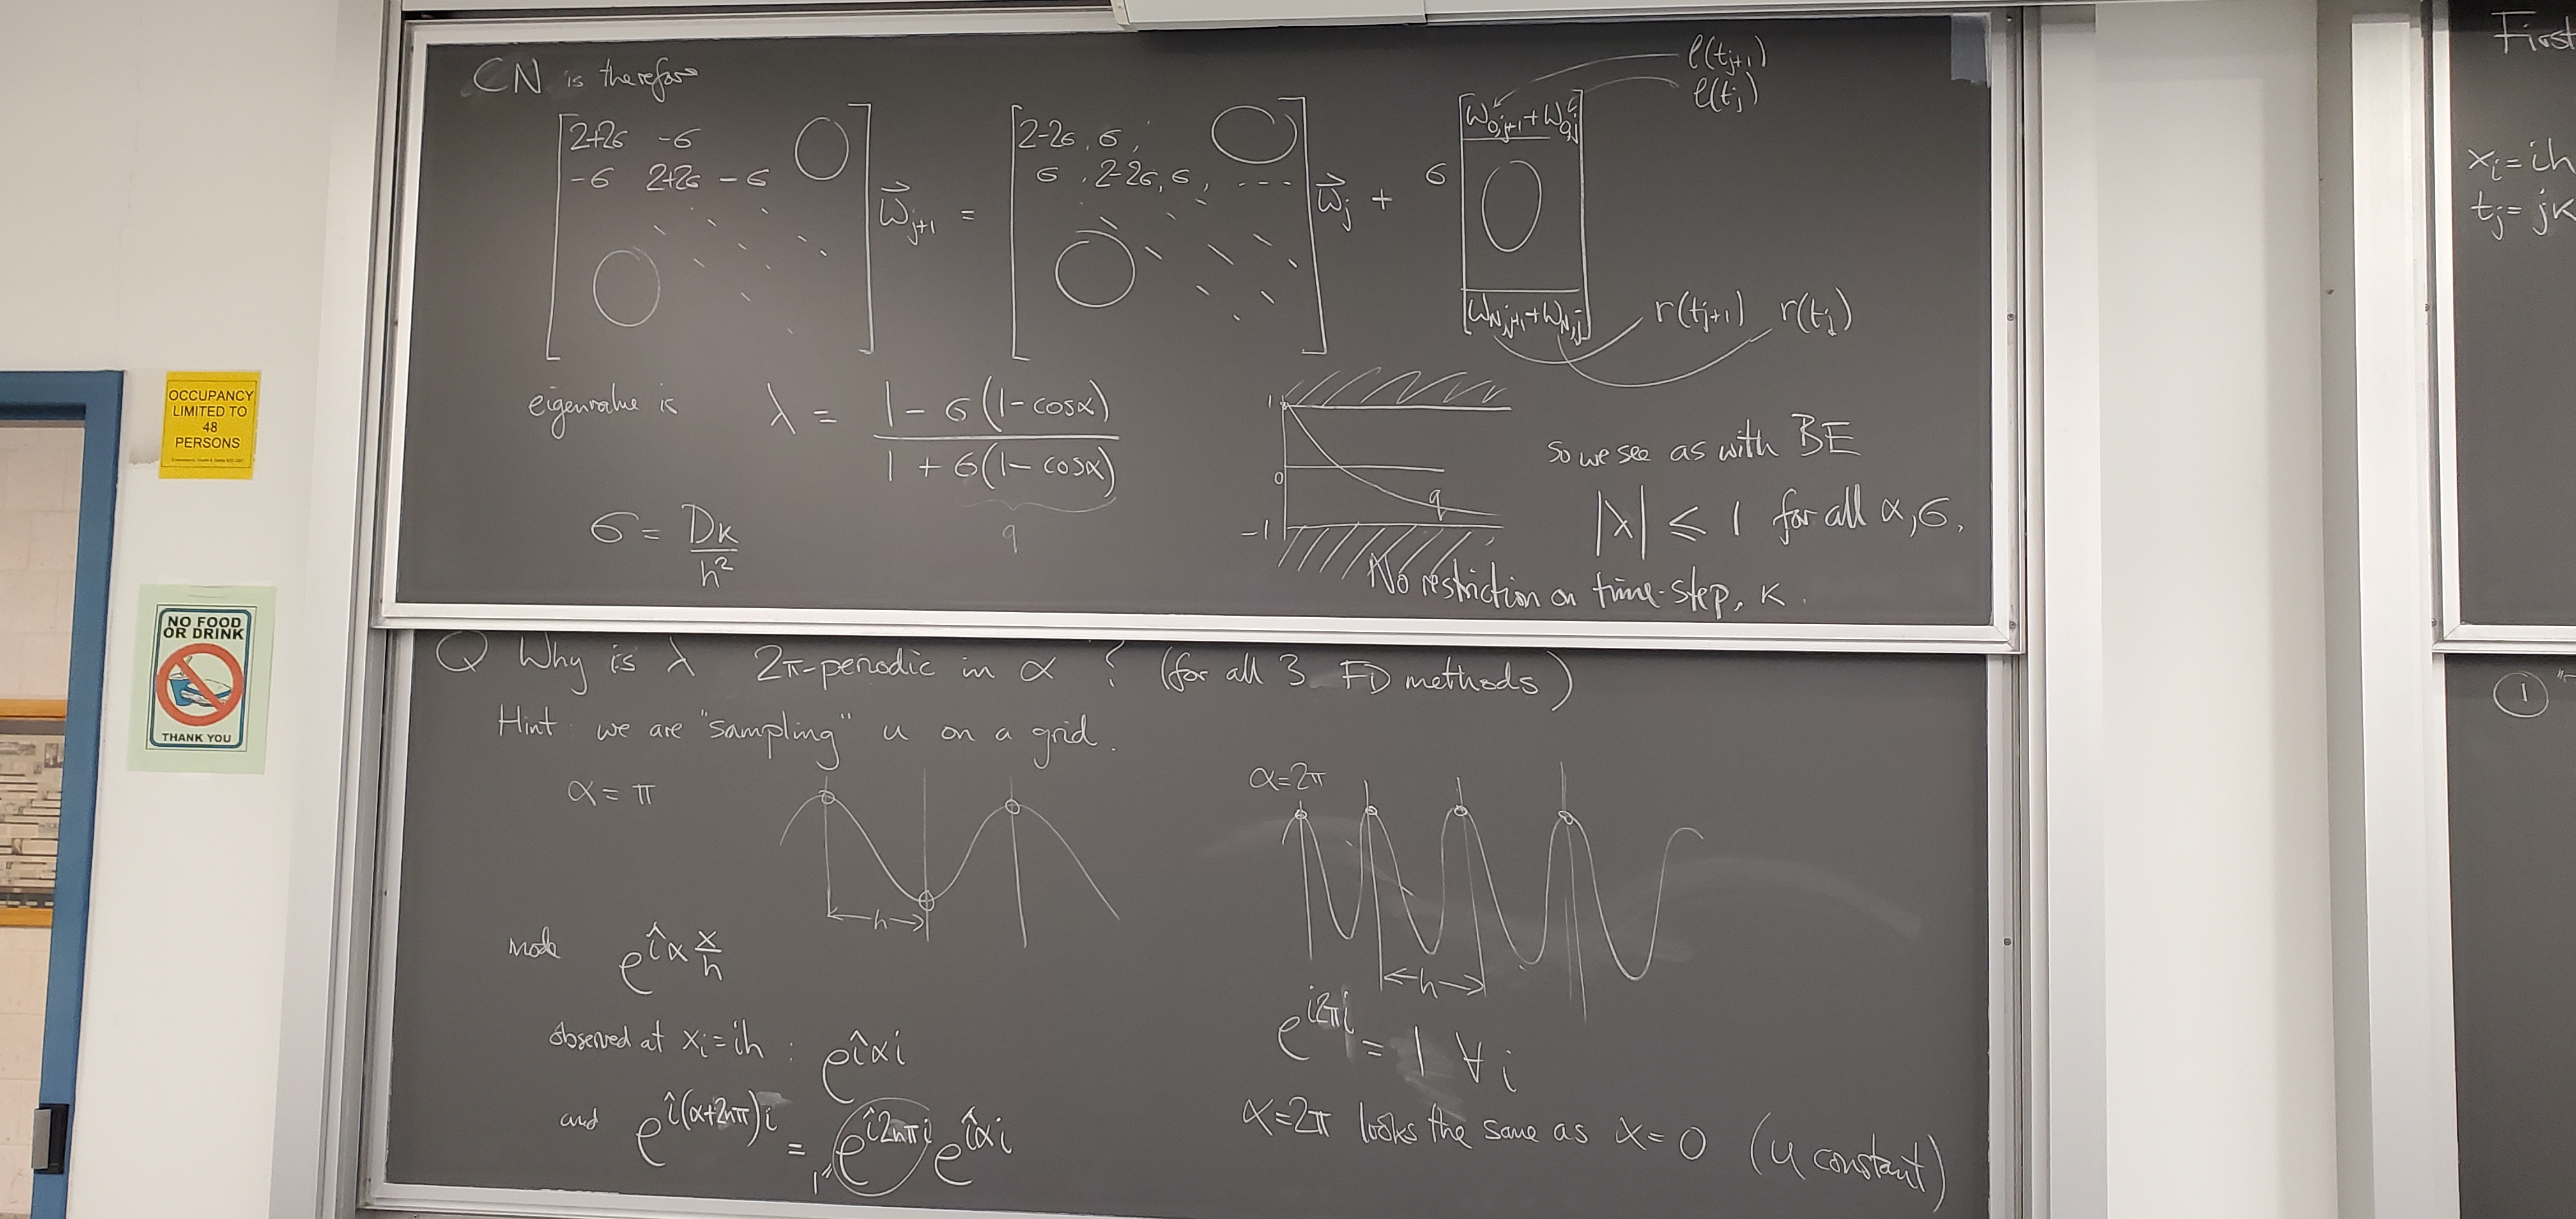 CN is therefore
[2+2σ -σ
-σ 2+2σ -σ
O O] w⃗ j+1 = [2-2σ, σ,
σ, 2-2σ, σ, ---
O O] w⃗ j + σ [w0,j+1 + w0,j
O
wN,j+1 + wN,j]
l(tj+1)
l(tj)
r(tj+1) r(tj)
eigenvalue is λ = (1 - σ(1-cosα)) / (1 + σ(1-cosα))
q
σ = Dk/h²
1
0
-1
q
so we see as with BE
|λ| ≤ 1 for all α, σ,
No restriction on time-step, k.
Q Why is λ 2π-periodic in α ? (for all 3 FD methods)
Hint: we are "sampling" u on a grid.
α = π
h
mode e^{îα x/h}
observed at xi = ih : e^{îαi}
and e^{î(α+2nπ)i} = e^{î2nπi} e^{îαi}
1=
α=2π
h
e^{i2πi} = 1 ∀i
α=2π looks the same as α=0 (u constant)
First
xi = ih
tj = jk
1
OCCUPANCY
LIMITED TO
48
PERSONS
NO FOOD
OR DRINK
THANK YOU